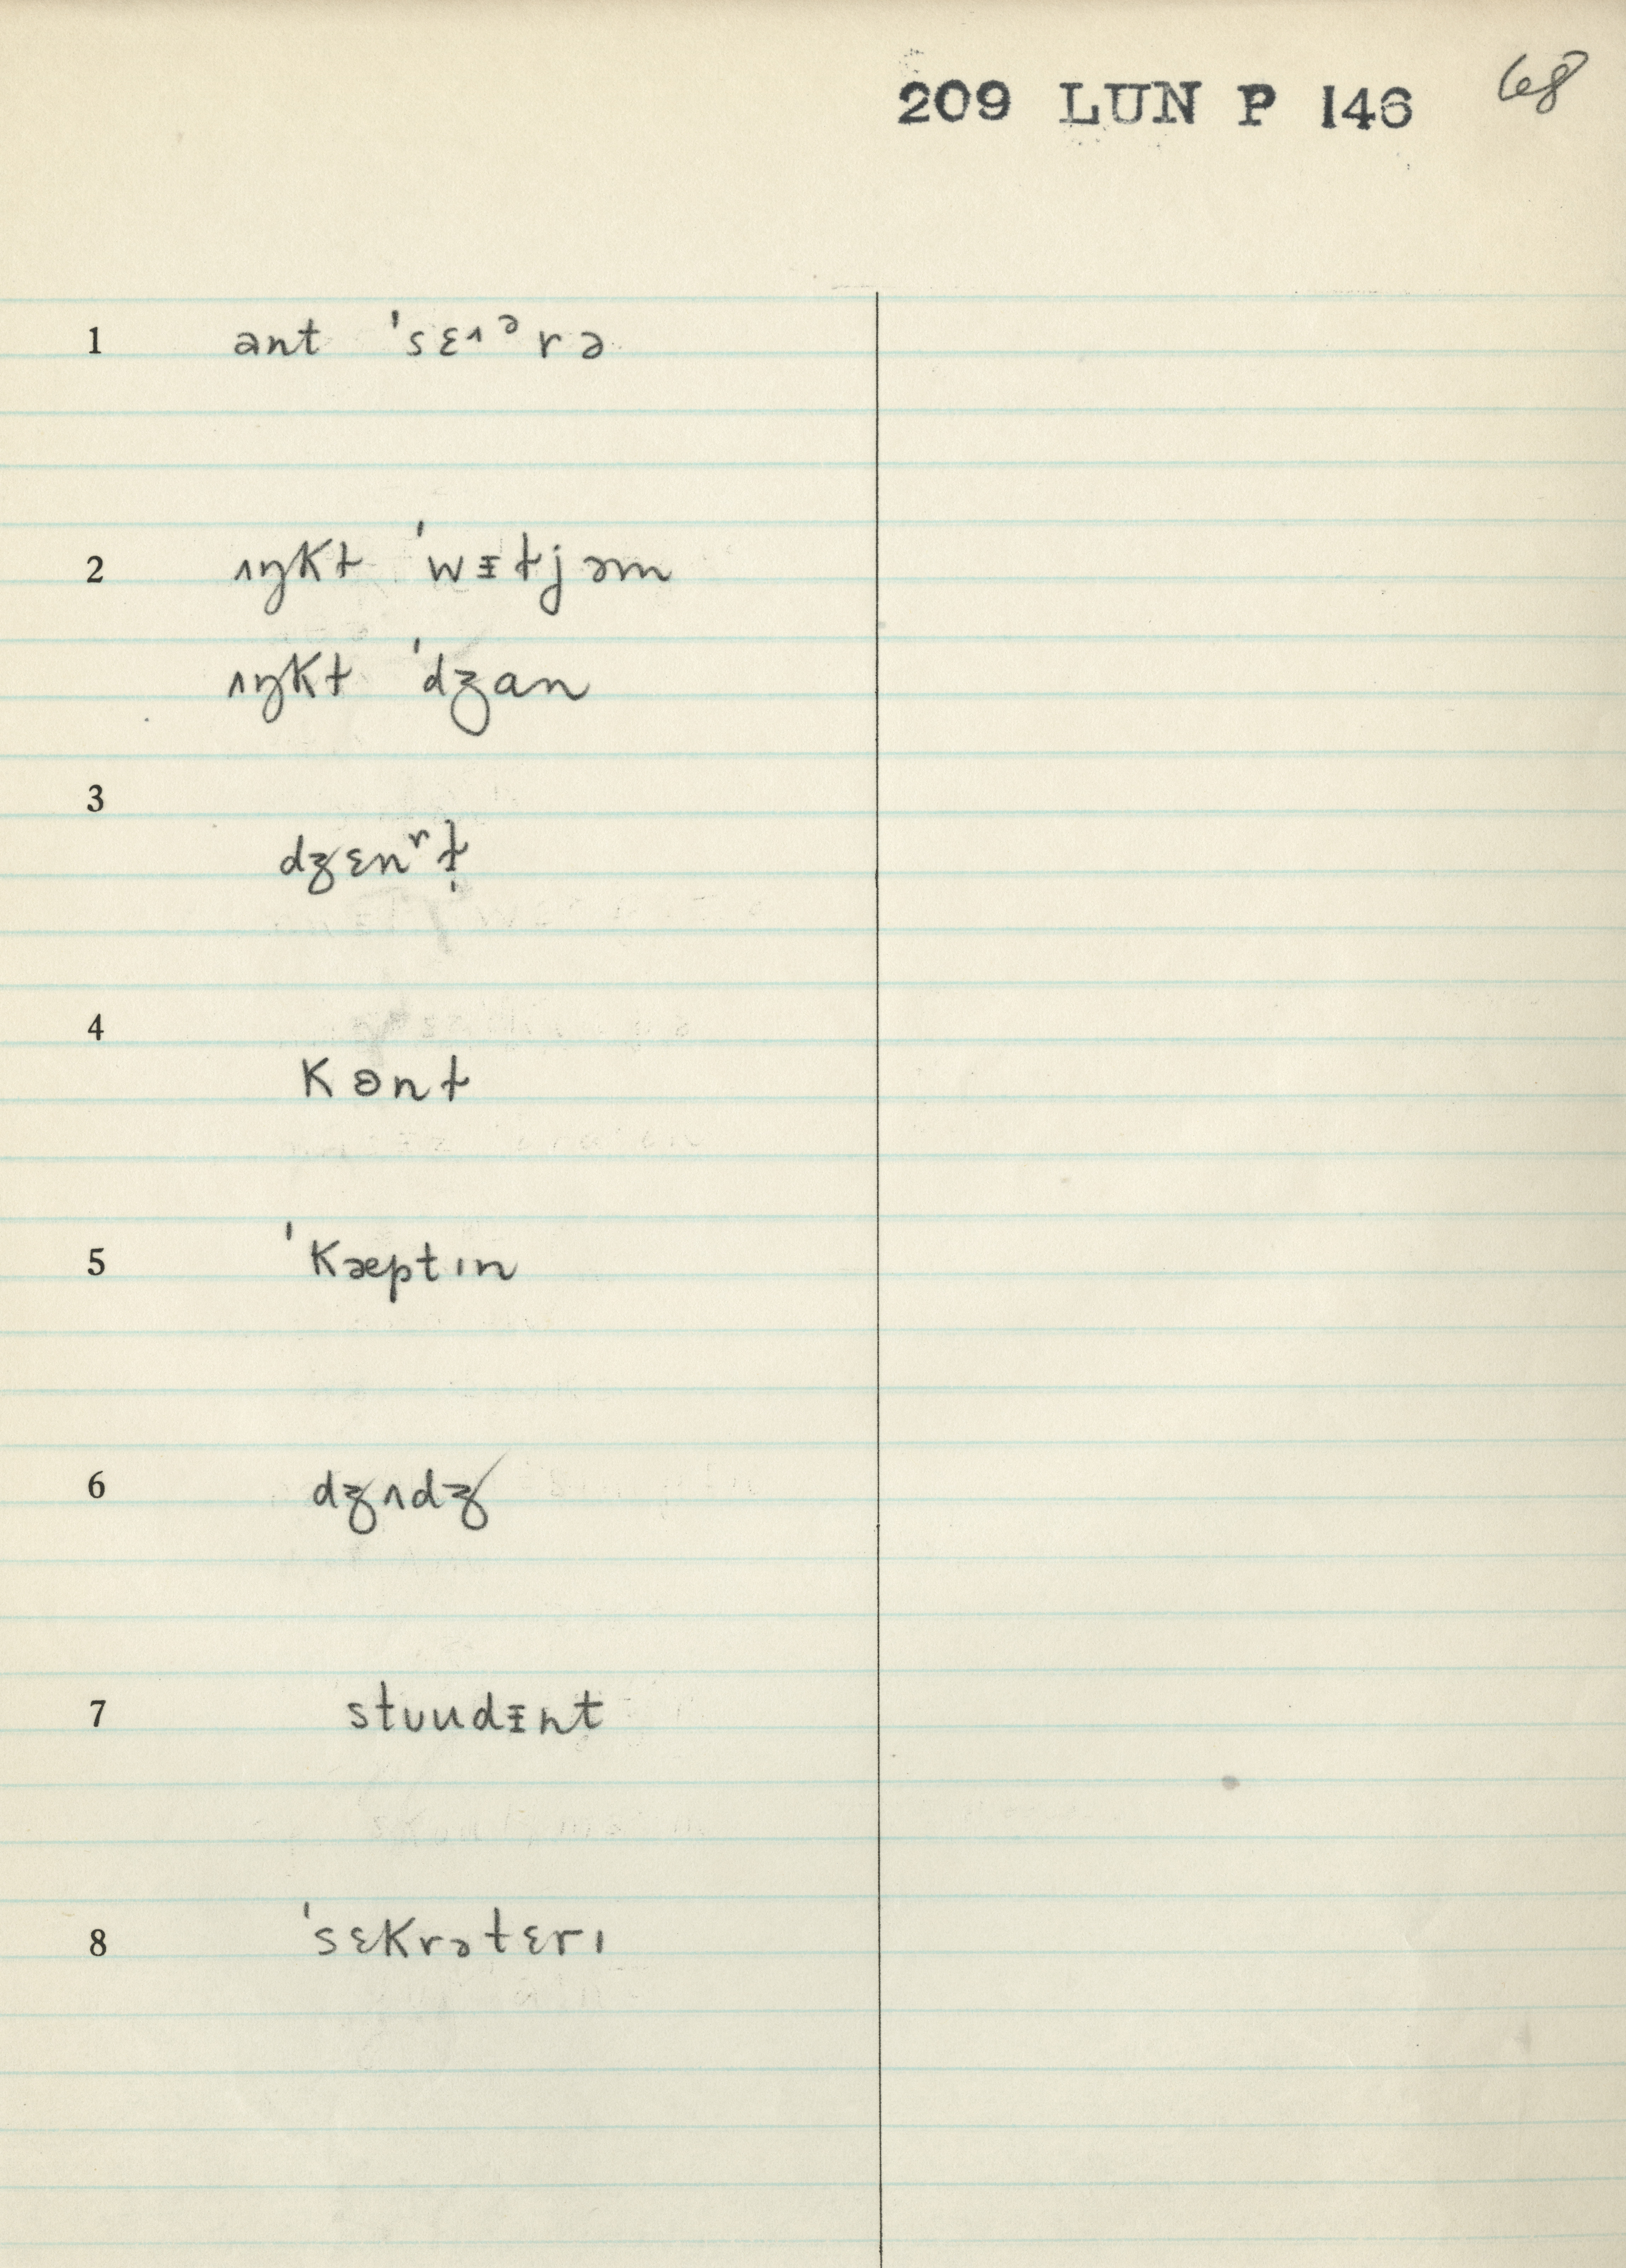 209 LUN P 146 68
1 ant ˈsɛ^ᵊrə
2 ʌŋkɫ ˈwᵻɫjəm
ʌŋkɫ ˈdʒan
3 dʒɛnʳɫ̩
4 kɵnɫ
5 ˈkæptɪn
6 dʒʌdʒ
7 stᴜudᵻnt
8 ˈsɛkrətɛrɪ